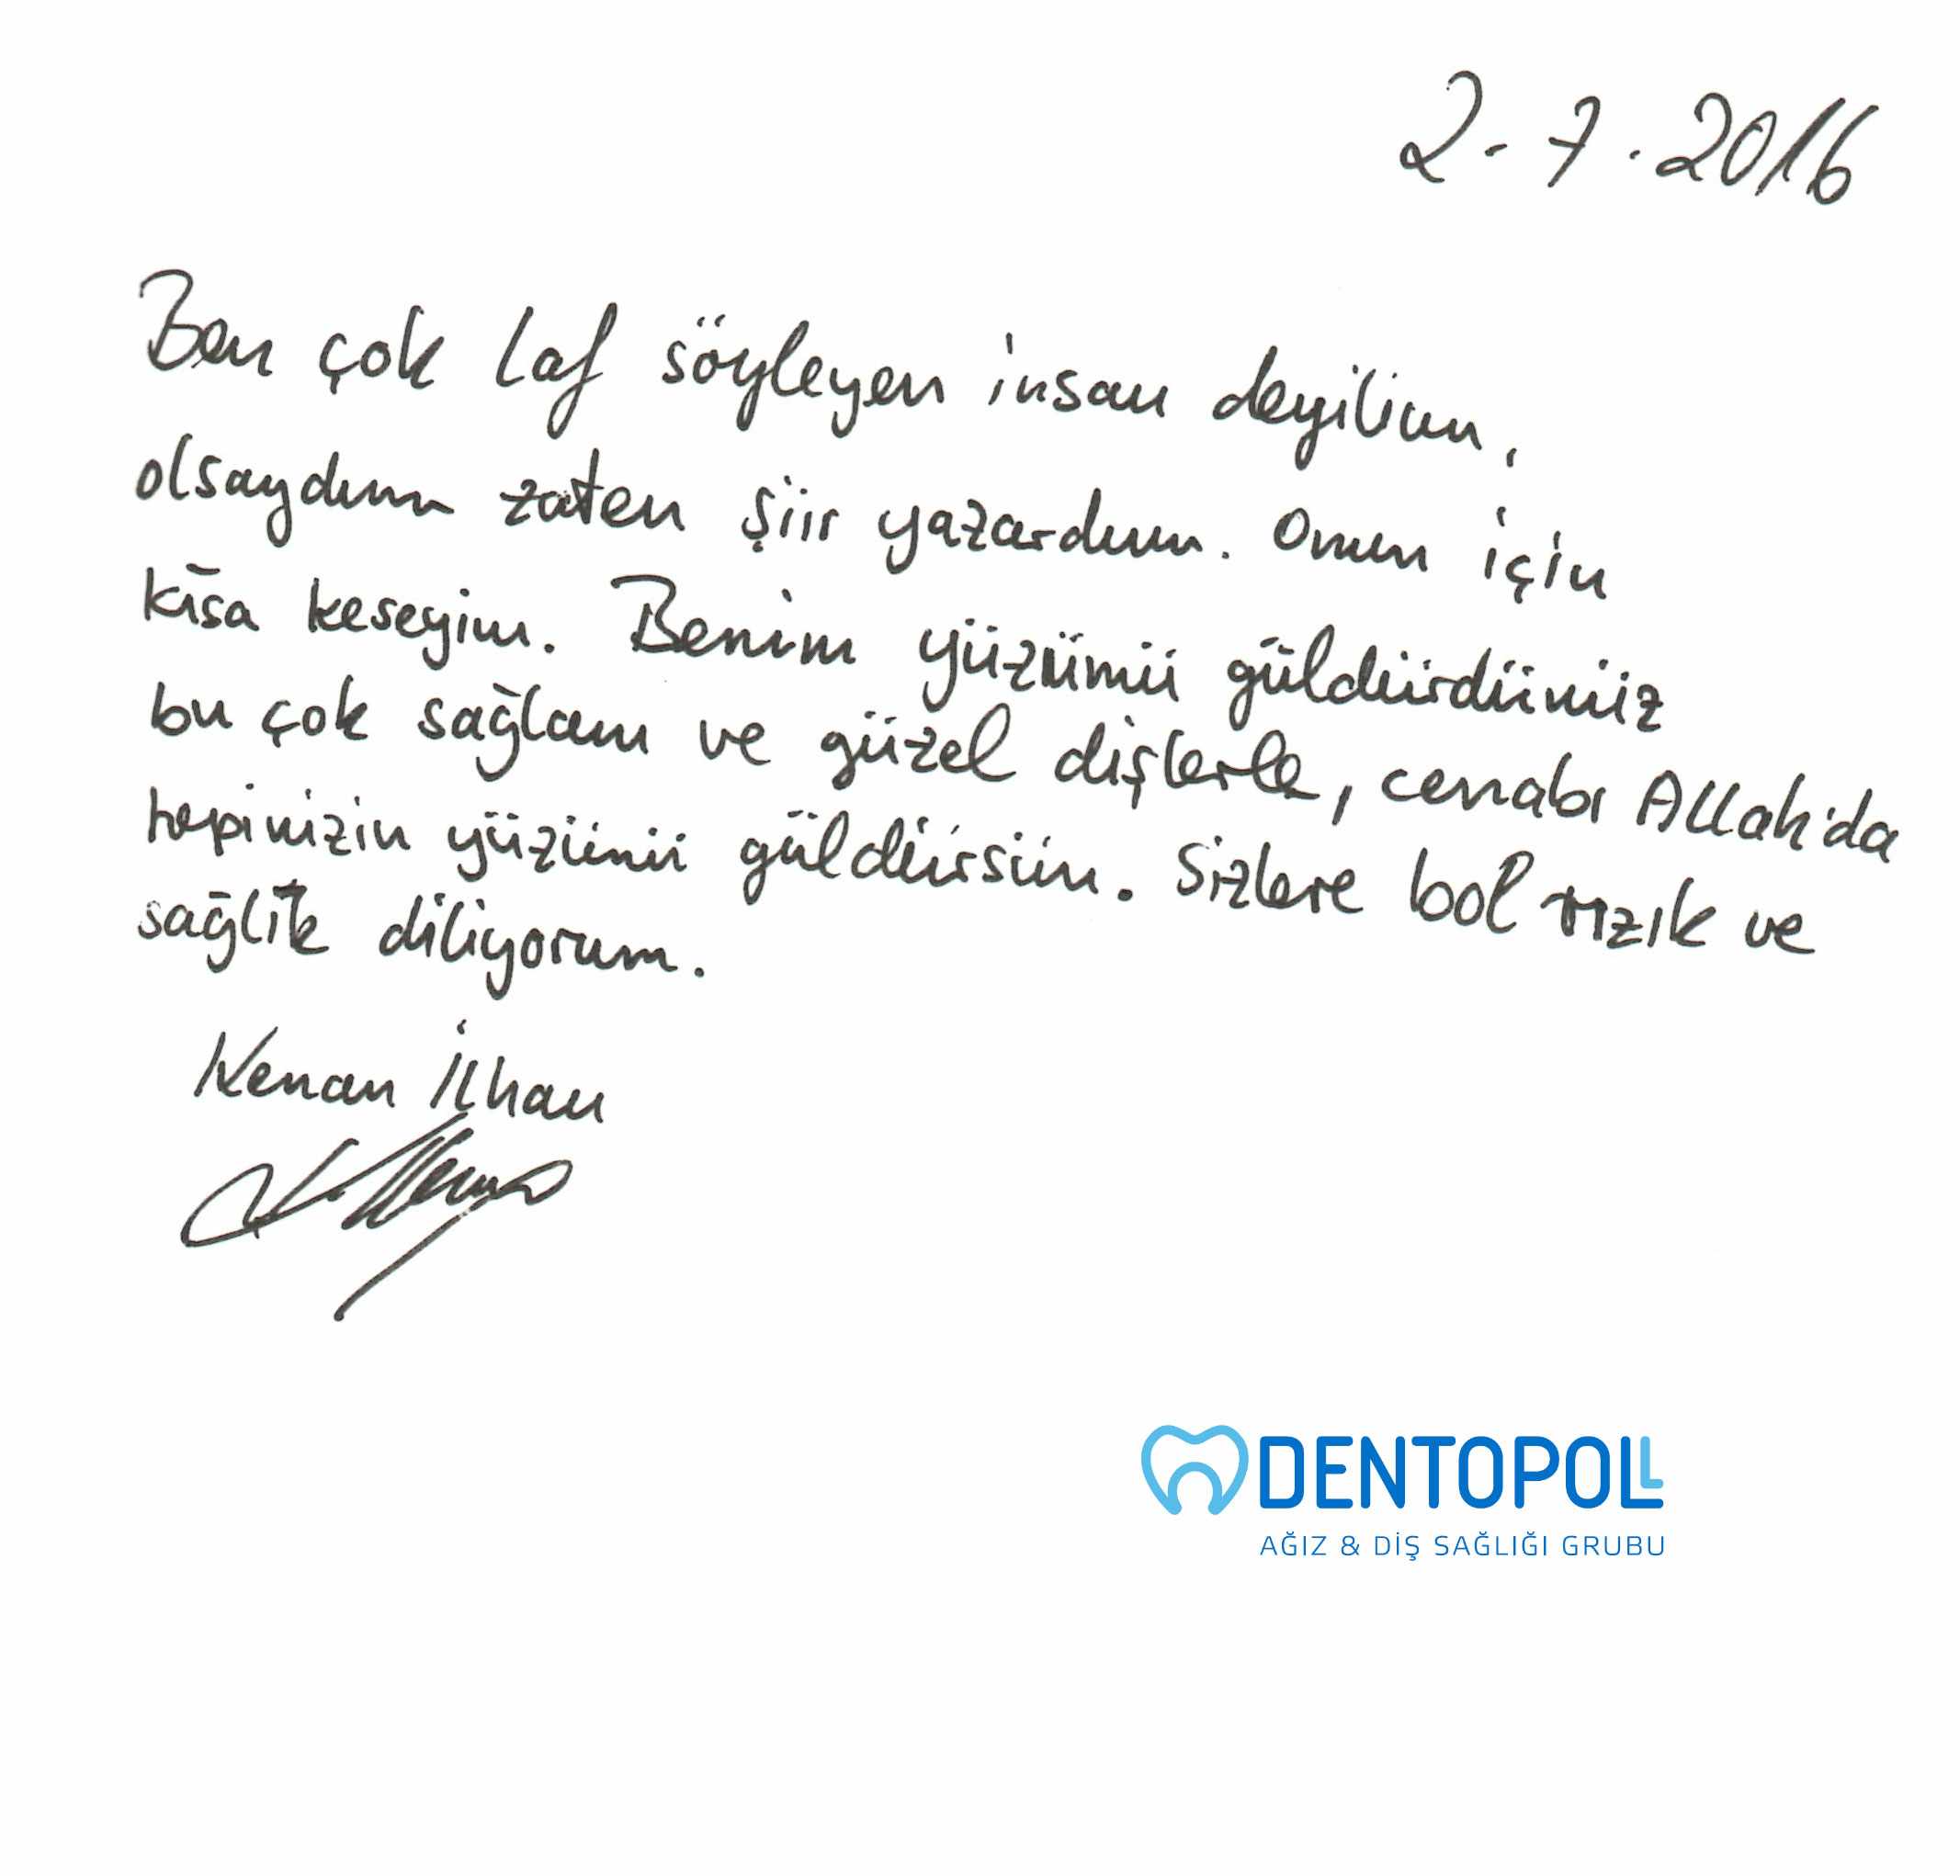 2.7.2016
Ben çok laf söyleyen insan deyilim,
olsaydım zaten şiir yazardım. Onun için
kısa keseyim. Benim yüzümü güldürdünüz
bu çok sağlam ve güzel dişlerle, cenabı Allah'da
hepinizin yüzünü güldürsün. Sizlere bol rızık ve
sağlık diliyorum.
Kenan İlhan
DENTOPOLL
AĞIZ & DİŞ SAĞLIĞI GRUBU